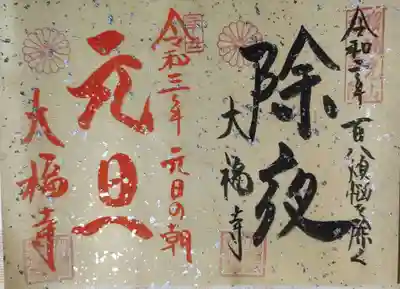 令和二年 百八煩悩を除く
除夜
大福寺
令和三年 元日の朝
元旦
大福寺